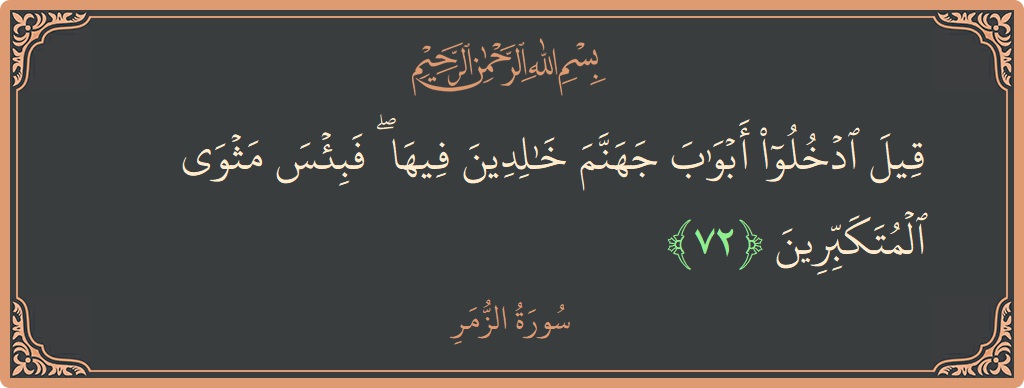 بِسْمِ اللهِ الرَّحْمٰنِ الرَّحِيْمِ
قِيلَ ٱدْخُلُوٓا۟ أَبْوَٰبَ جَهَنَّمَ خَـٰلِدِينَ فِيهَا ۖ فَبِئْسَ مَثْوَى
ٱلْمُتَكَبِّرِينَ ﴿٧٢﴾
سُورَةُ الزُّمَرِ